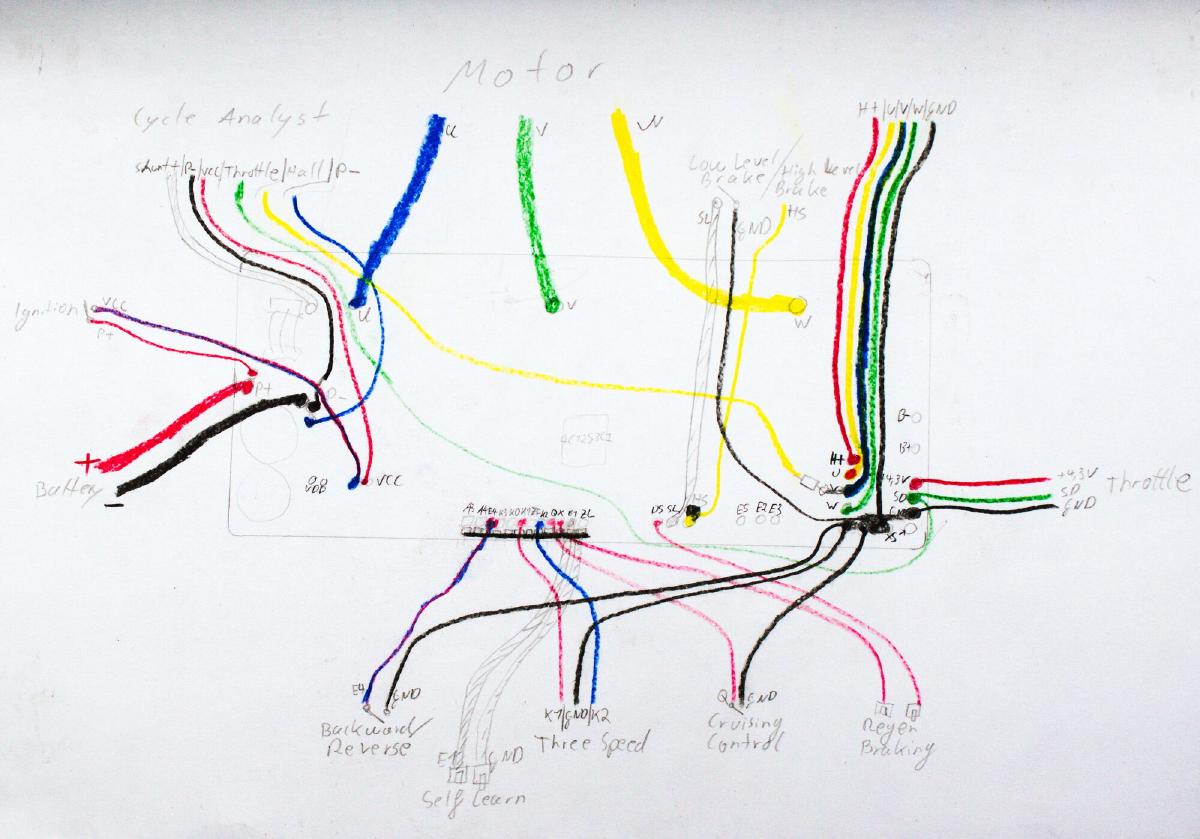 Motor
Cycle Analyst
Shunt+/P-/VCC/Throttle/Hall/P-
U
V
W
H+/U/V/W/GND
Low Level
Brake
/High Level
Brake
SL
GND
HS
Ignition
VCC
P+
U
V
W
P+
P-
+
Battery
-
VCC
B-
B+
H+
U
W
+4,3V
SD
+4,3V
SD
GND
Throttle
HS
US SL
E5 E2 E3
E4
GND
Backward/
Reverse
GND
Self Learn
K1/GND/K2
Three Speed
Q
GND
Cruising
Control
Regen
Braking